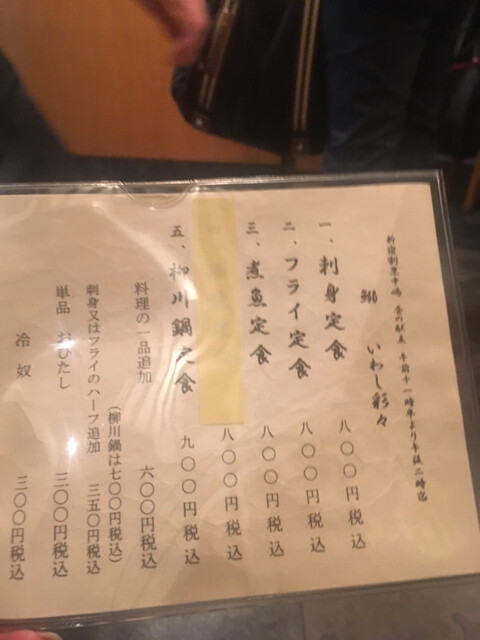 新宿割烹中嶋 昼の献立 午前十一時半より午後二時迄
鰯 いわし彩々
一、刺身定食 八〇〇円税込
二、フライ定食 八〇〇円税込
三、煮魚定食 八〇〇円税込
八〇〇円税込
五、柳川鍋定食 九〇〇円税込
料理の一品追加 六〇〇円税込
(柳川鍋は七〇〇円税込)
刺身又はフライのハーフ追加 三五〇円税込
単品 おひたし 三〇〇円税込
冷奴 三〇〇円税込